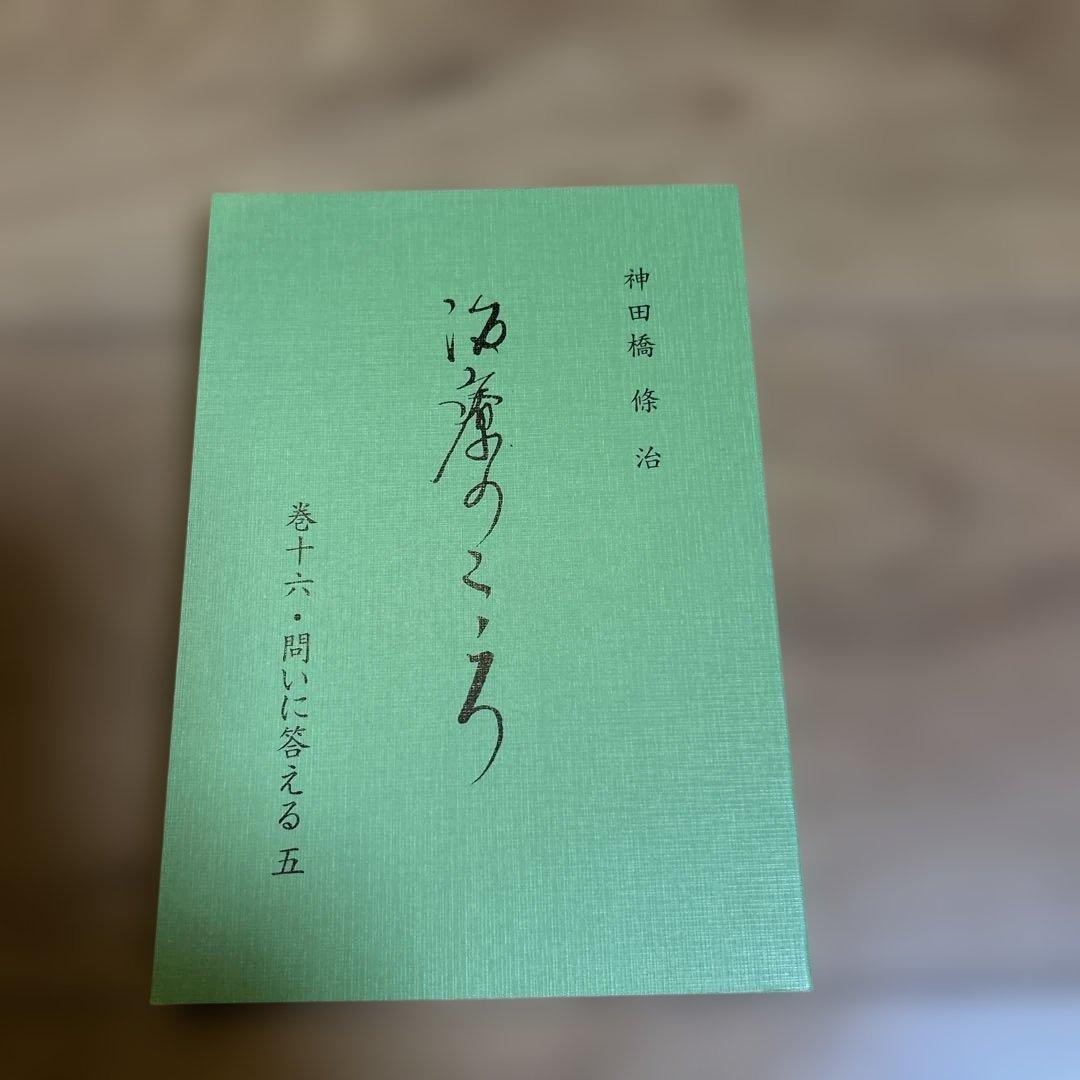 神田橋 條治
治療のこゝろ
巻十六・問いに答える 五